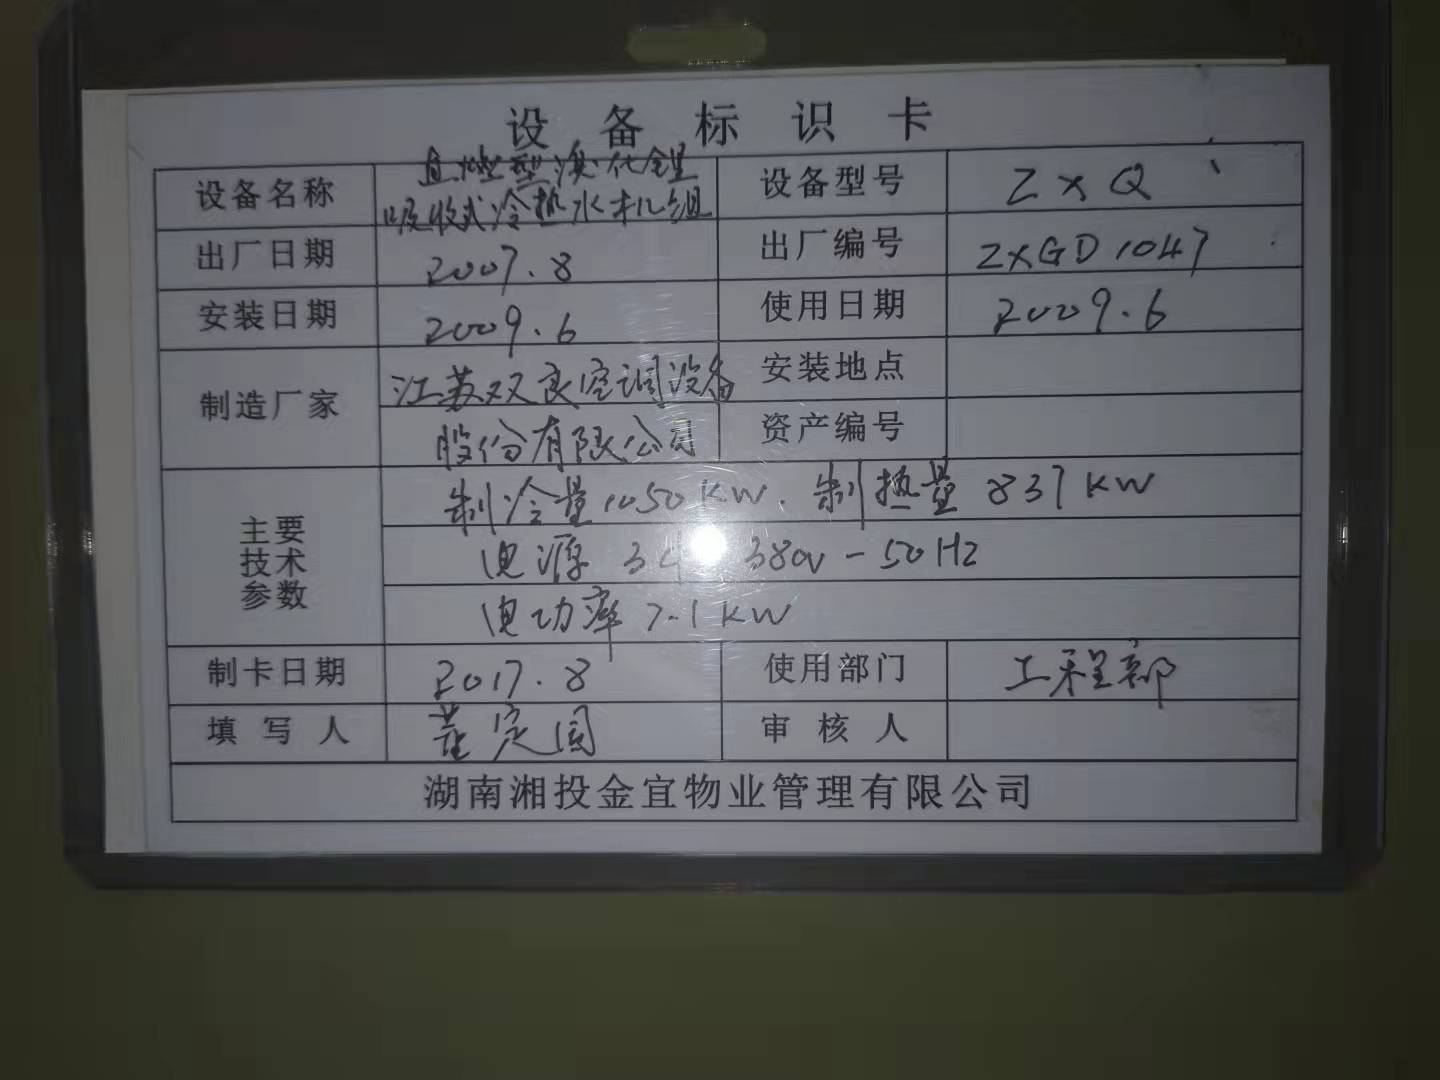 设备标识卡
设备名称 直燃型溴化锂 设备型号 ZXQ
吸收式冷热水机组
出厂日期 2007.8 出厂编号 ZXGD1047
安装日期 2009.6 使用日期 2009.6
制造厂家 江苏双良空调设备 安装地点
股份有限公司 资产编号
主要技术参数 制冷量1050KW. 制热量837KW
电源 3 380V-50HZ
电功率7.1KW
制卡日期 2017.8 使用部门 工程部
填写人 定国 审核人
湖南湘投金宜物业管理有限公司